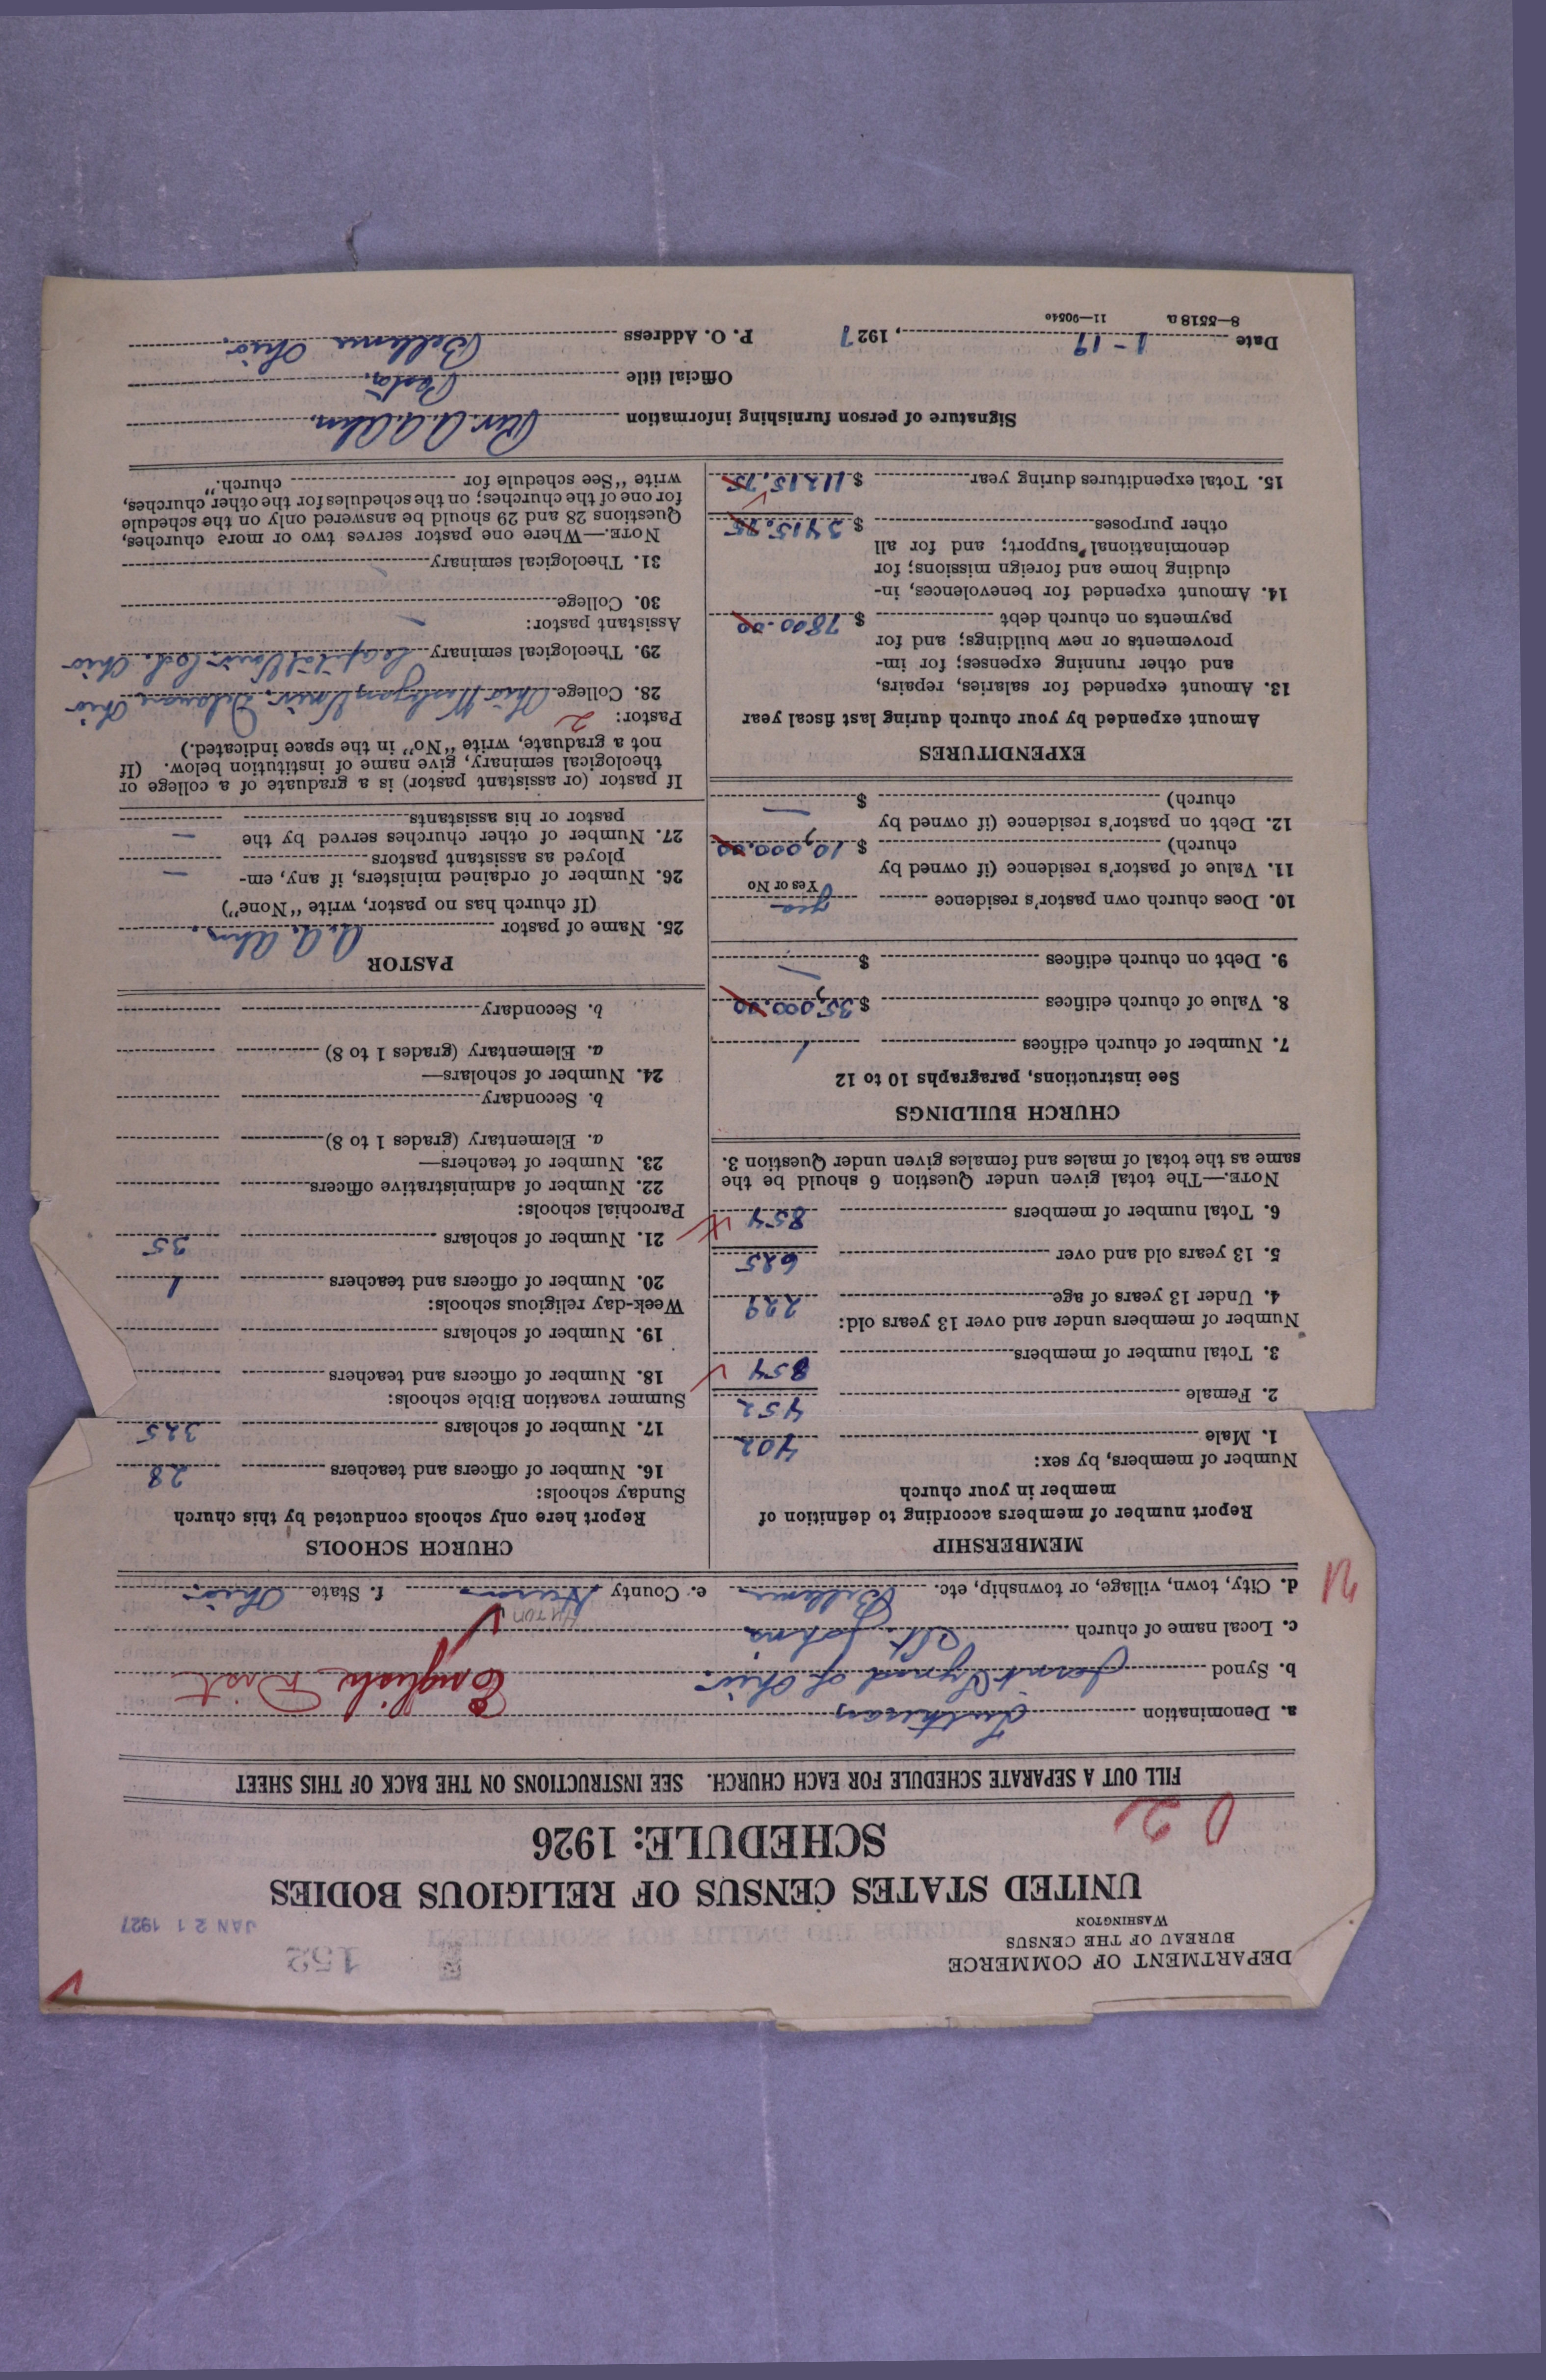 DEPARTMENT OF COMMERCE
BUREAU OF THE CENSUS
WASHINGTON
152
JAN 21 1927
UNITED STATES CENSUS OF RELIGIOUS BODIES
SCHEDULE: 1926
FILL OUT A SEPARATE SCHEDULE FOR EACH CHURCH. SEE INSTRUCTIONS ON THE BACK OF THIS SHEET
a. Denomination Lutheran
b. Synod Joint Synod of Ohio. English Dist
c. Local name of church St. Johns
d. City, town, village, or township, etc. Bellevue e. County Huron HURON f. State Ohio.
MEMBERSHIP
Report number of members according to definition of
member in your church
Number of members, by sex:
1. Male 402
2. Female 452
3. Total number of members 854
Number of members under and over 13 years old:
4. Under 13 years of age 229
5. 13 years old and over 625
6. Total number of members 854
NOTE.—The total given under Question 6 should be the
same as the total of males and females given under Question 3.
CHURCH BUILDINGS
See instructions, paragraphs 10 to 12
7. Number of church edifices 1
8. Value of church edifices $ 35,000.00
9. Debt on church edifices $ —
10. Does church own pastor's residence yes
Yes or No
11. Value of pastor's residence (if owned by
church) $ 10,000.00
12. Debt on pastor's residence (if owned by
church) $ —
EXPENDITURES
Amount expended by your church during last fiscal year
13. Amount expended for salaries, repairs,
and other running expenses; for im-
provements or new buildings; and for
payments on church debt $ 7800.00
14. Amount expended for benevolences, in-
cluding home and foreign missions; for
denominational support; and for all
other purposes $ 3415.75
15. Total expenditures during year $ 11215.75
CHURCH SCHOOLS
Report here only schools conducted by this church
Sunday schools:
16. Number of officers and teachers 28
17. Number of scholars 325
Summer vacation Bible schools:
18. Number of officers and teachers
19. Number of scholars
Week-day religious schools:
20. Number of officers and teachers 1
21. Number of scholars 35
Parochial schools:
22. Number of administrative officers
23. Number of teachers—
a. Elementary (grades 1 to 8)
b. Secondary
24. Number of scholars—
a. Elementary (grades 1 to 8)
b. Secondary
PASTOR
25. Name of pastor A. A. Ahn.
(If church has no pastor, write "None")
26. Number of ordained ministers, if any, em-
ployed as assistant pastors —
27. Number of other churches served by the
pastor or his assistants —
If pastor (or assistant pastor) is a graduate of a college or
theological seminary, give name of institution below. (If
not a graduate, write "No" in the space indicated.)
Pastor: 2
28. College Ohio Wesleyan Univ. Delaware Ohio
29. Theological seminary Capital Univ. Cols. Ohio
Assistant pastor:
30. College
31. Theological seminary
NOTE.—Where one pastor serves two or more churches,
Questions 28 and 29 should be answered only on the schedule
for one of the churches; on the schedules for the other churches,
write "See schedule for church."
Signature of person furnishing information Rev. A. A. Ahn.
Official title Pastor.
Date 1-19, 1927 P. O. Address Bellevue Ohio.
8—5518 a 11—90540